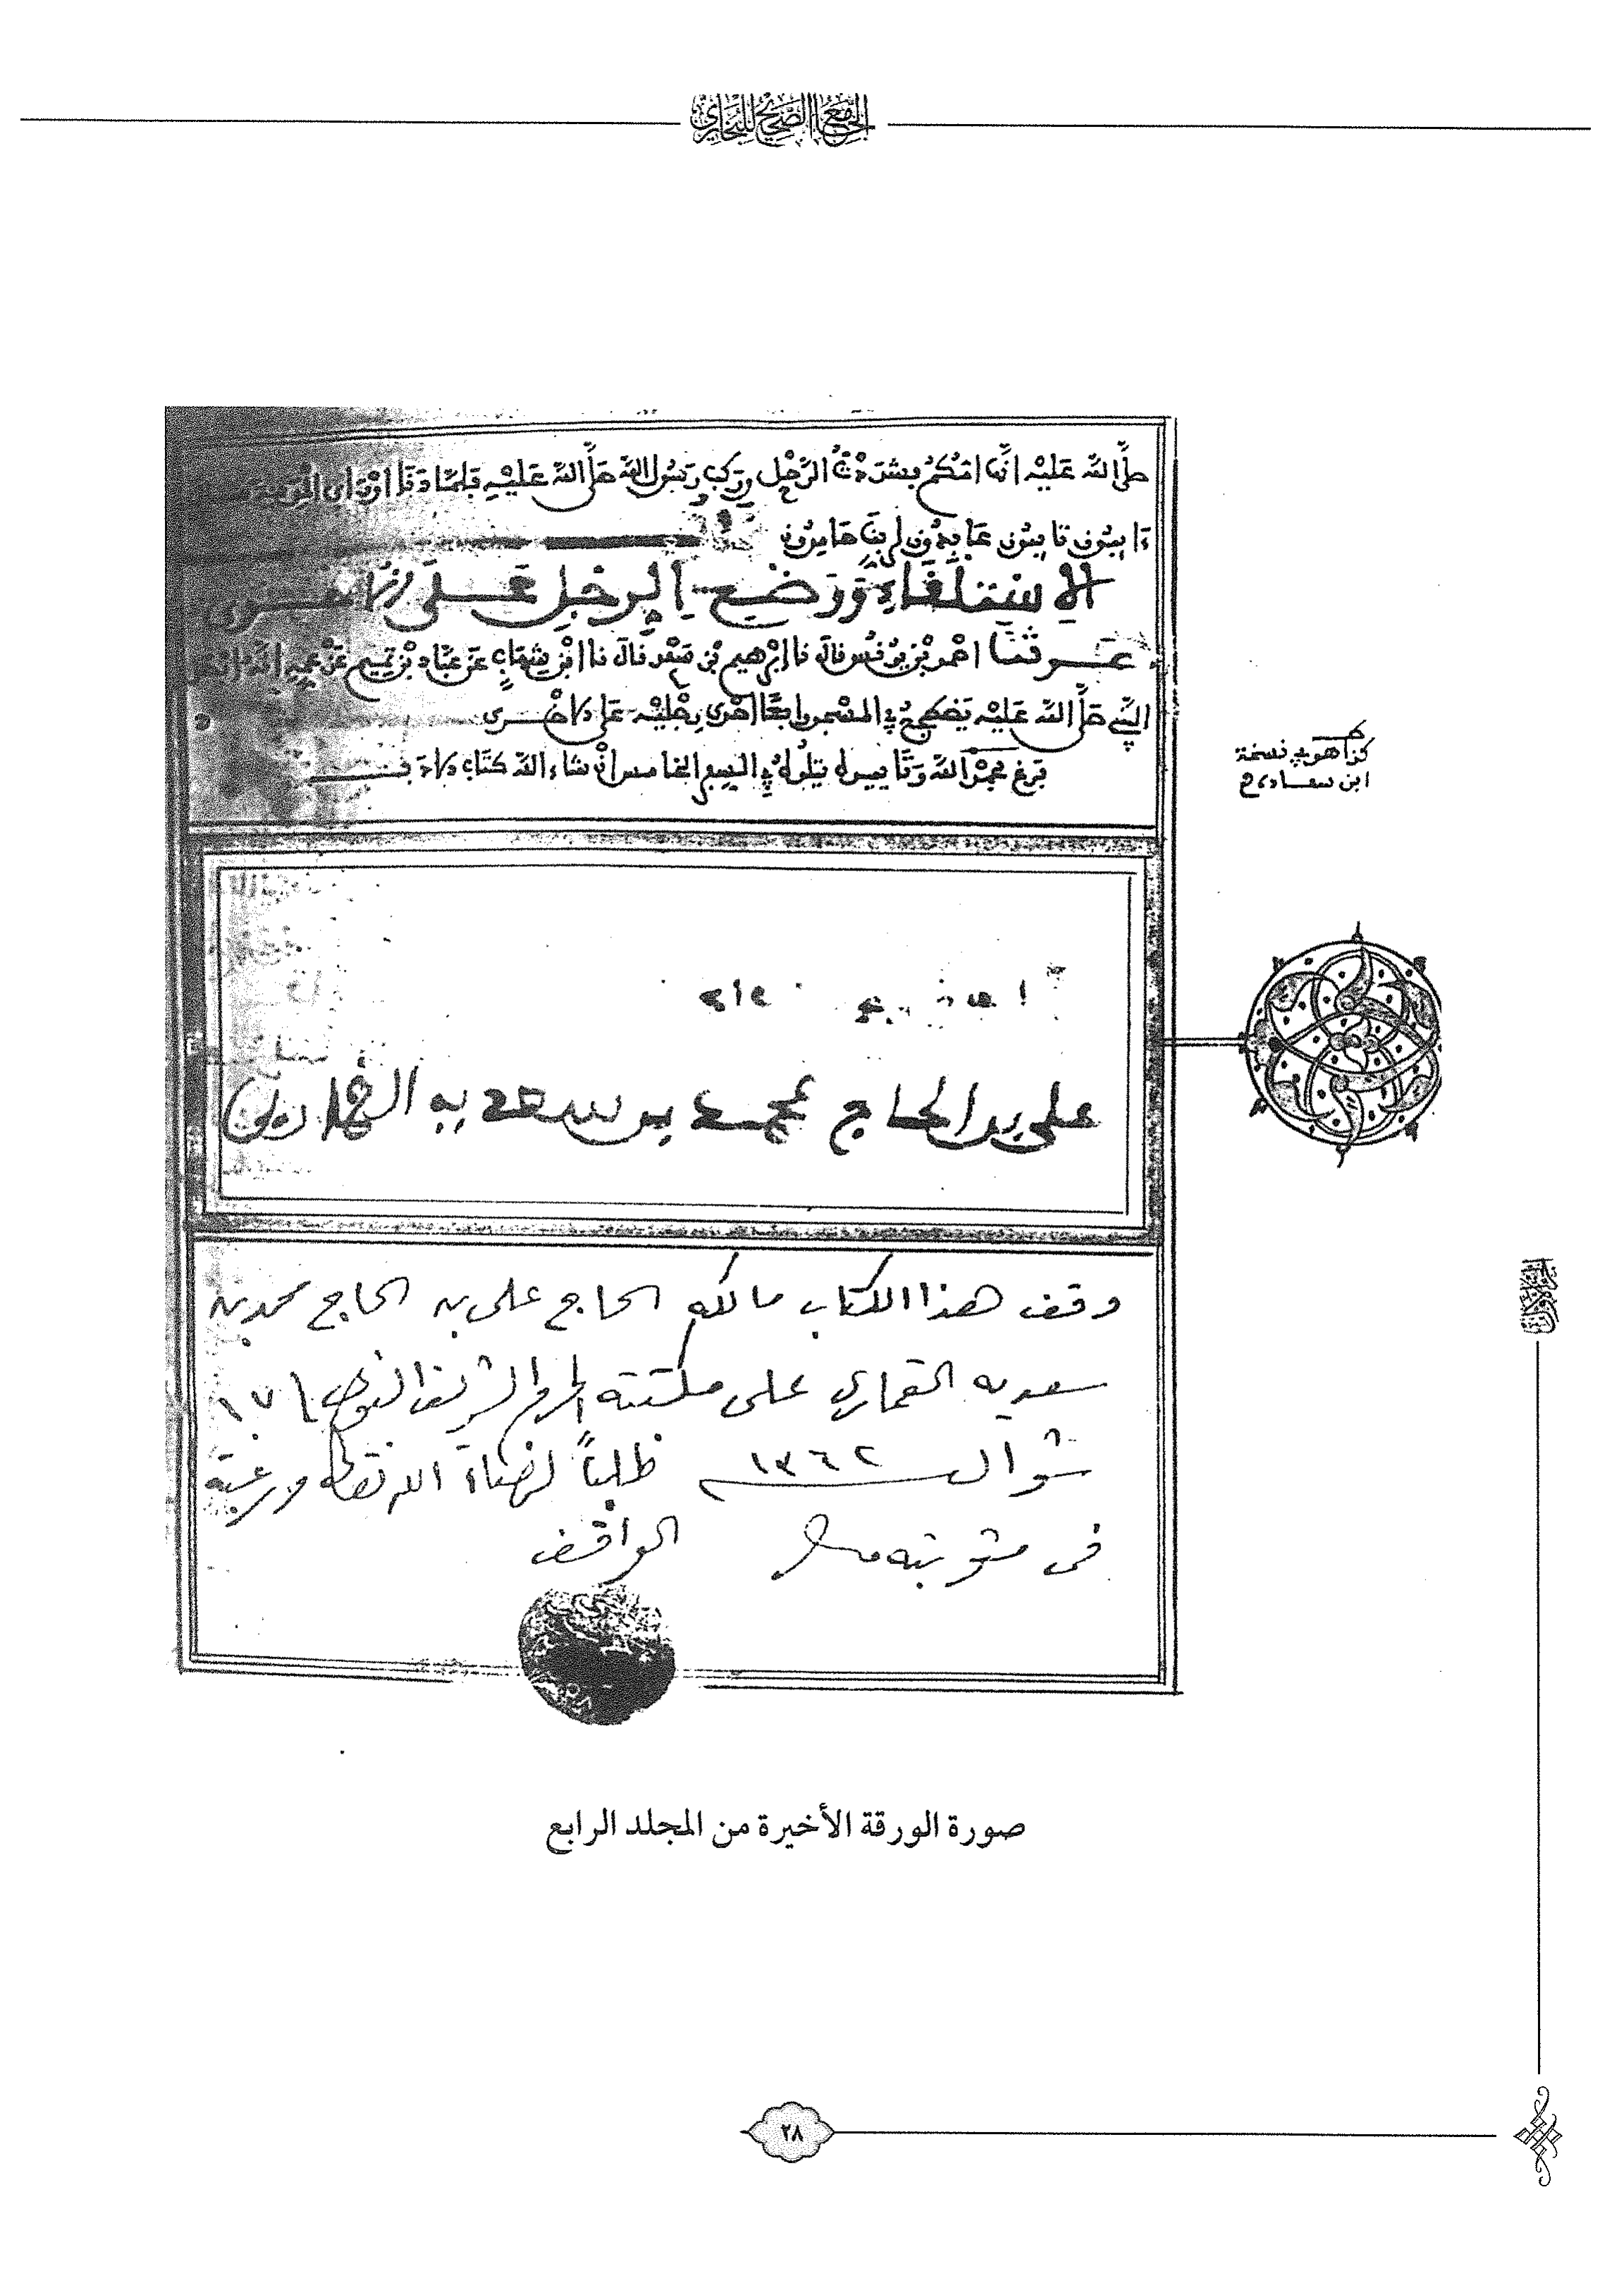 الجامع الصحيح للبخاري
صلى الله عليه انما امكم بشر الرجل وركب رسول الله صلى الله عليه فلما دنا اوراى المدينة
ءايبون تايبون عابدون لربنا حامدون
الاستلقاء ووضع الرجل على الاخرى
حدثنا احمد بن يونس قال نا ابرهيم بن سعد قال نا ابن شهاب عن عباد بن تميم عن عمه انه ابصر
النبي صلى الله عليه يضطجع في المسجد رافعا احدى رجليه على الاخرى
فرغ بحمد الله وتاييده يتلوه في السفر الخامس ان شاء الله كتاب الادب
كذا هو في نسخة
ابن سعادة
على بن الحاج محمد بن سعديه القماري
وقف هذا الكتاب مالكه الحاج على بن الحاج محمد بن
سعديه القماري على مكتبة الحرم الشريف النبوي ١٧
شوال ١٣٦٢ طلباً لمرضاة الله تعالى ورغبة
فى مثوبته
الواقف
صورة الورقة الأخيرة من المجلد الرابع
٢٨